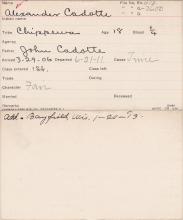 Name File No.
Alexander Cadotte
Indian name
Tribe Chippewa Age 18 Blood 3/4
Agency
Father John Cadotte
Arrived 3-29-06 Departed 6-21-11 Cause Time
Class entered Class left
Trade Outing
Character Fair
Married Deceased
Remarks
Add. Bayfield, Wis. 1-20-'13.